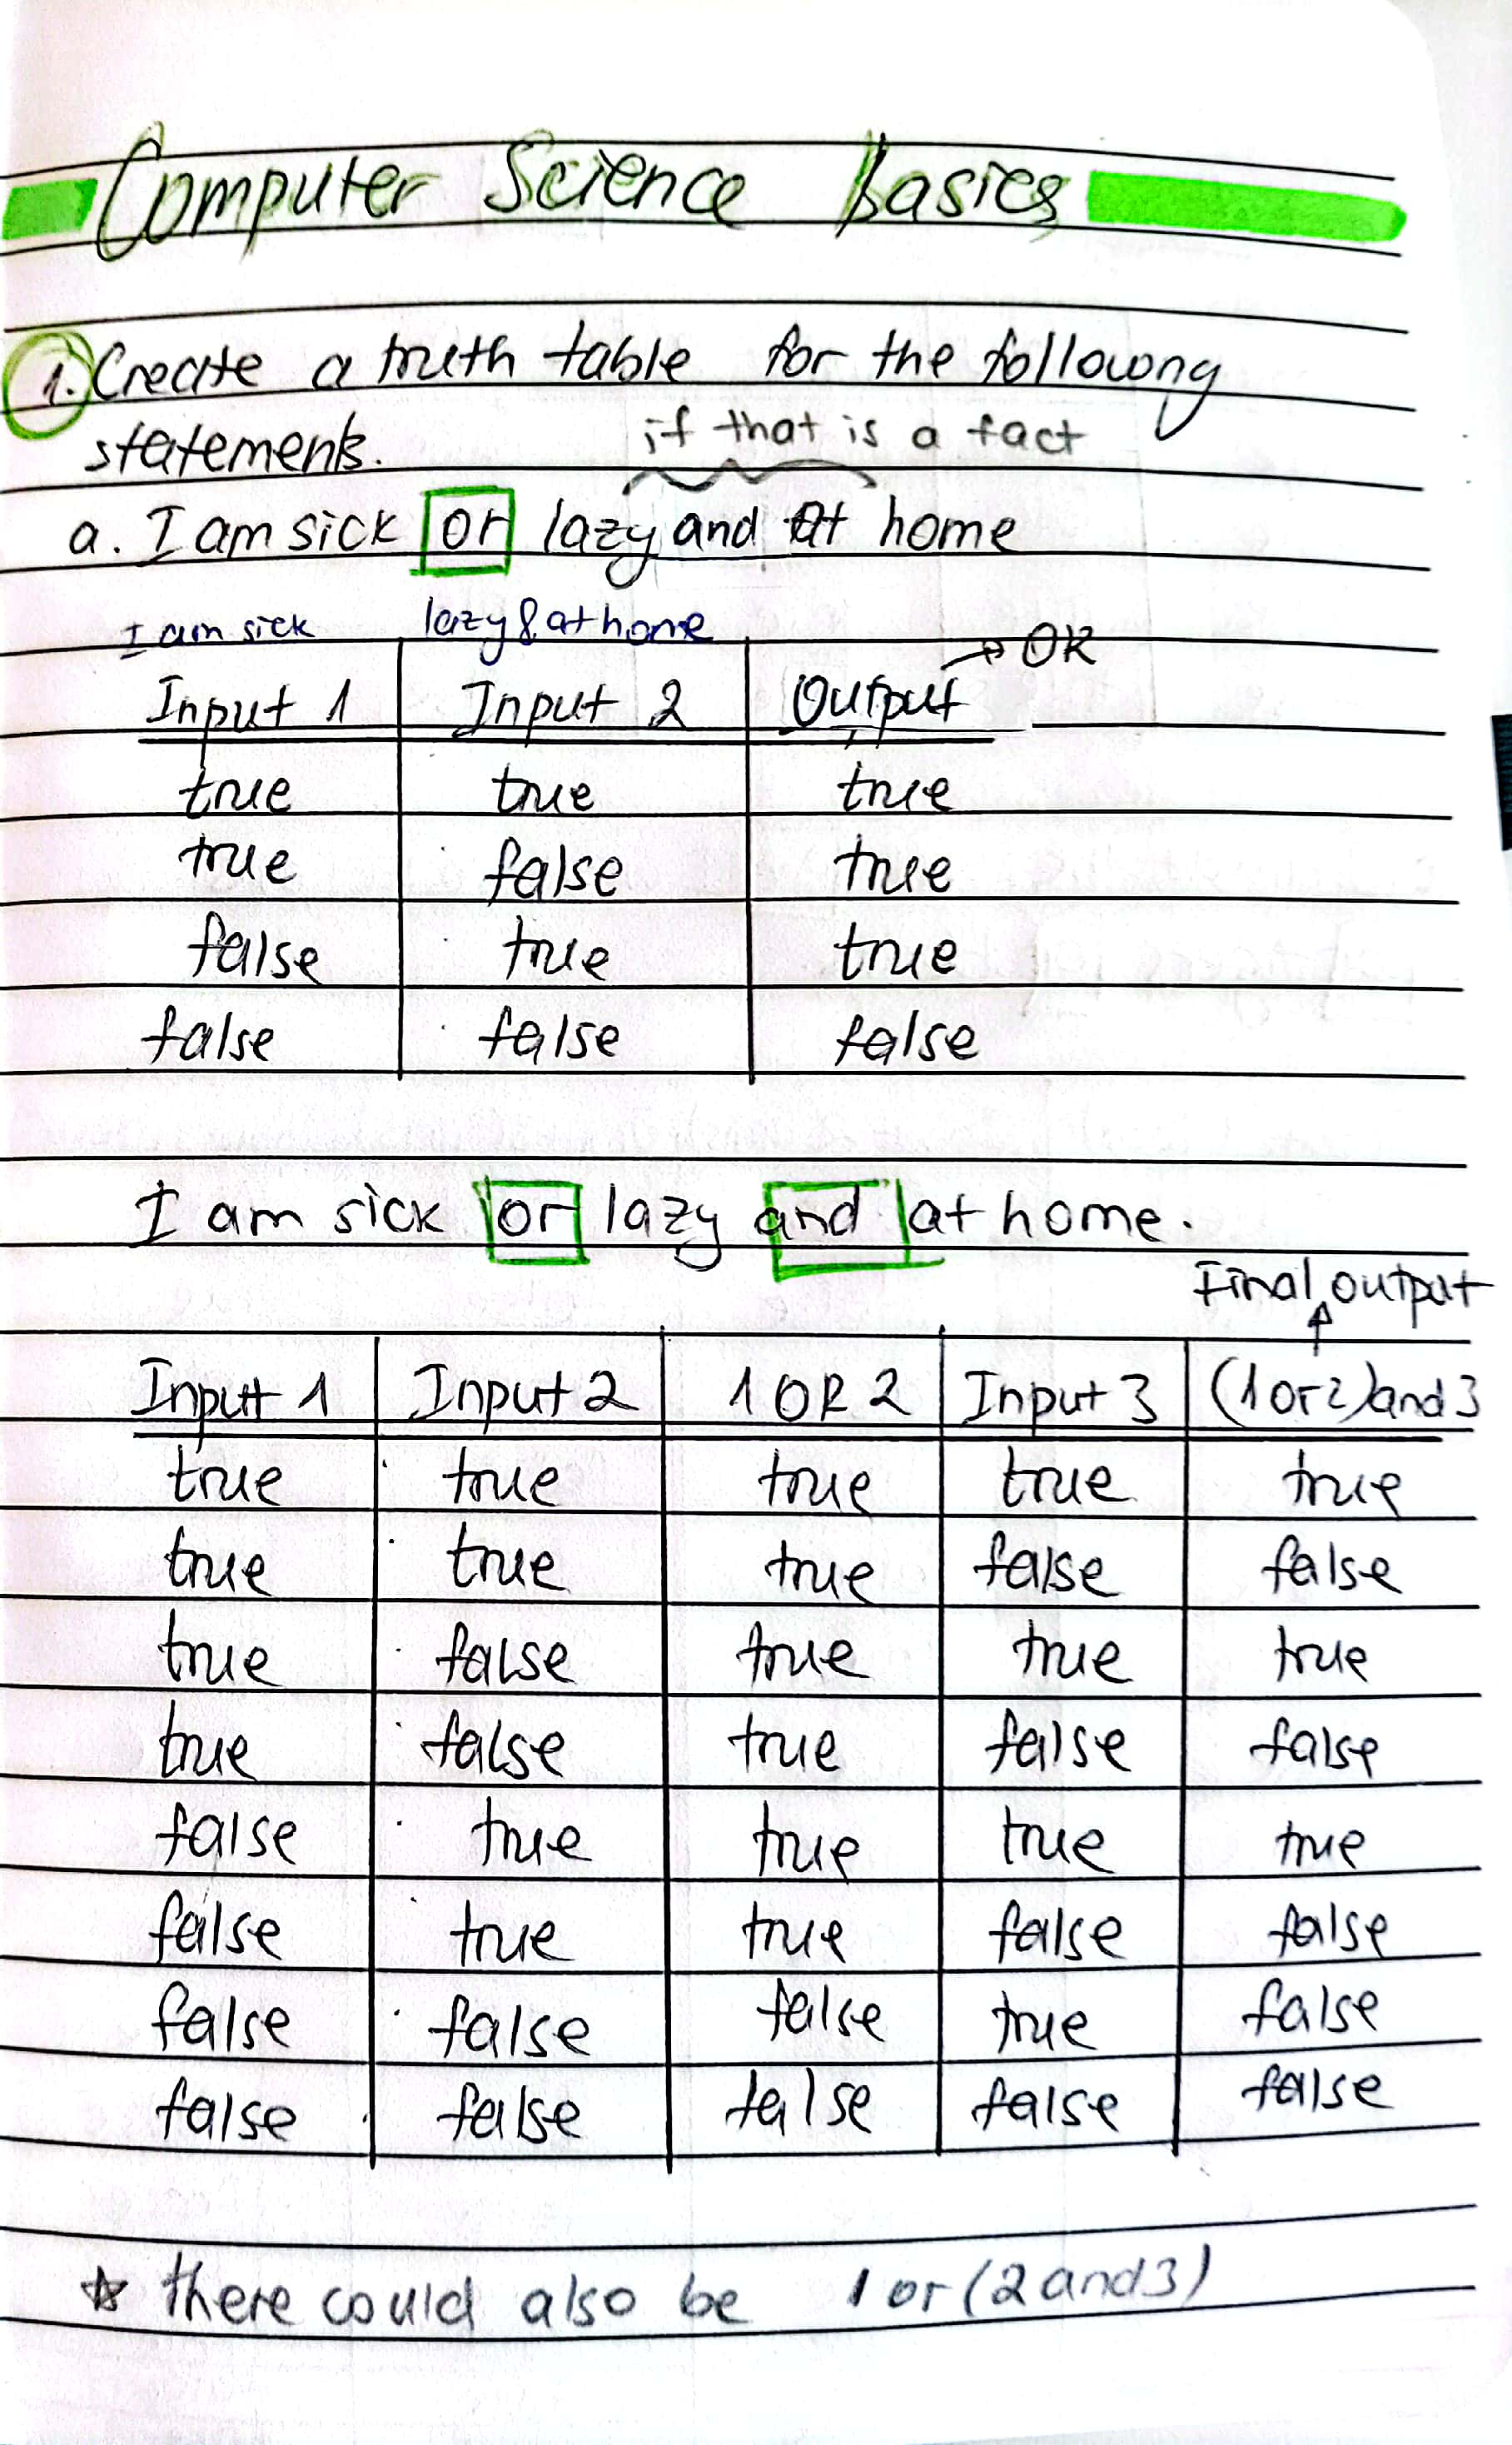 Computer Science Basics
1. Create a truth table for the followong
statements.
if that is a fact
a. I am sick or lazy and at home
I am sick lazy & at home
→ OR
Input 1 Input 2 Output
true true true
true false true
false true true
false false false
I am sick or lazy and at home.
Final output
Input 1 Input 2 1 OR 2 Input 3 (1 or 2) and 3
true true true true true
true true true false false
true false true true true
true false true false false
false true true true true
false true true false false
false false false true false
false false false false false
☆ there could also be 1 or (2 and 3)